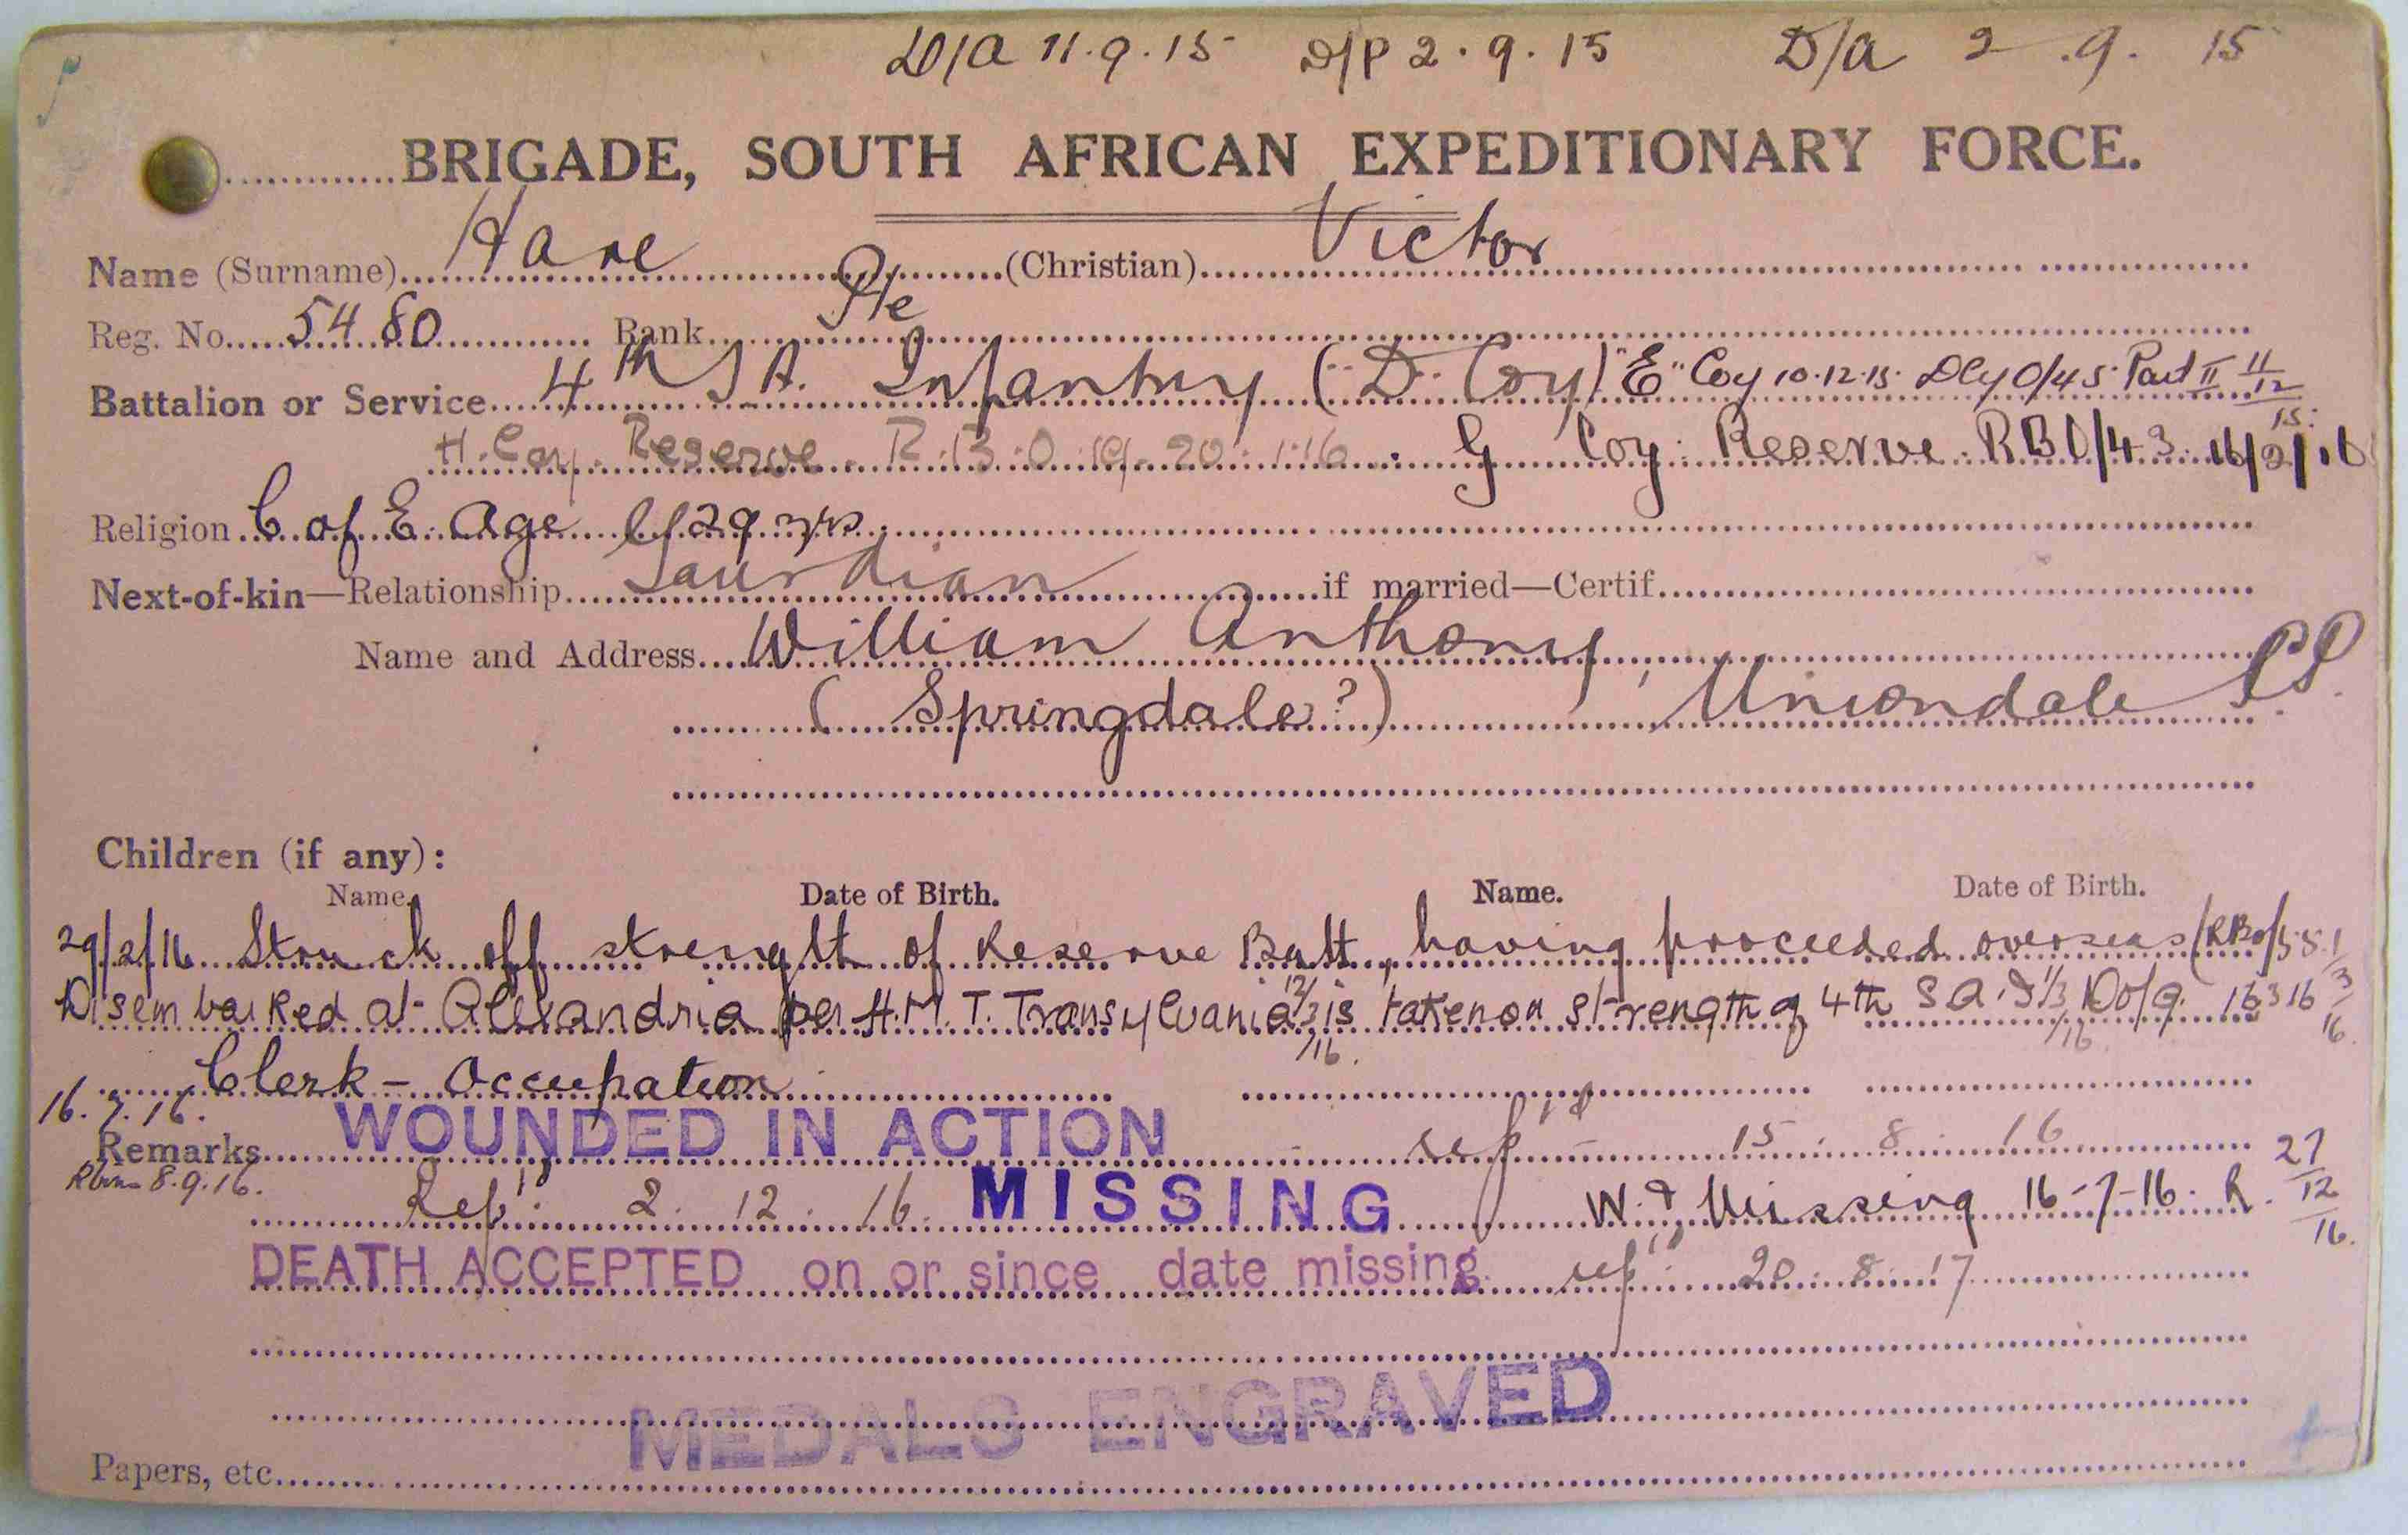 D/A 11.9.15 D/P 2.9.15 D/A 2.9.15
BRIGADE, SOUTH AFRICAN EXPEDITIONARY FORCE.
Name (Surname) Hare (Christian) Victor
Reg. No. 5480 Rank Pte
Battalion or Service 4th S A. Infantry ("D" Coy) "E" Coy 10.12.15 Dly O/45 Part II 11/12/15.
H. Coy. Reserve. R.B.O. 19. 20.1.16. G Coy. Reserve. RBO/43. 16/2/16
Religion C of E. Age 29 yrs.
Next-of-kin—Relationship Gaurdian if married—Certif
Name and Address William Anthony,
(Springdale?) Uniondale CP.
Children (if any):
Name. Date of Birth. Name. Date of Birth.
29/2/16 Struck off strength of Reserve Batt, having proceeded overseas (RBO/55. 1/3/16.
Disembarked at Alexandria per H.M.T. Transylvania 12/3/16. is taken on strength of 4th S A. I 1/3/16 DO/9. 16 3 16
Clerk - Occupation
16.7.16.
Remarks WOUNDED IN ACTION rep'd 15.8.16
8.9.16. Rep'd 2.12.16. MISSING W. & Missing 16-7-16. R. 27/12/16.
DEATH ACCEPTED on or since date missing. rep'd 20.8.17
MEDALS ENGRAVED
Papers, etc.